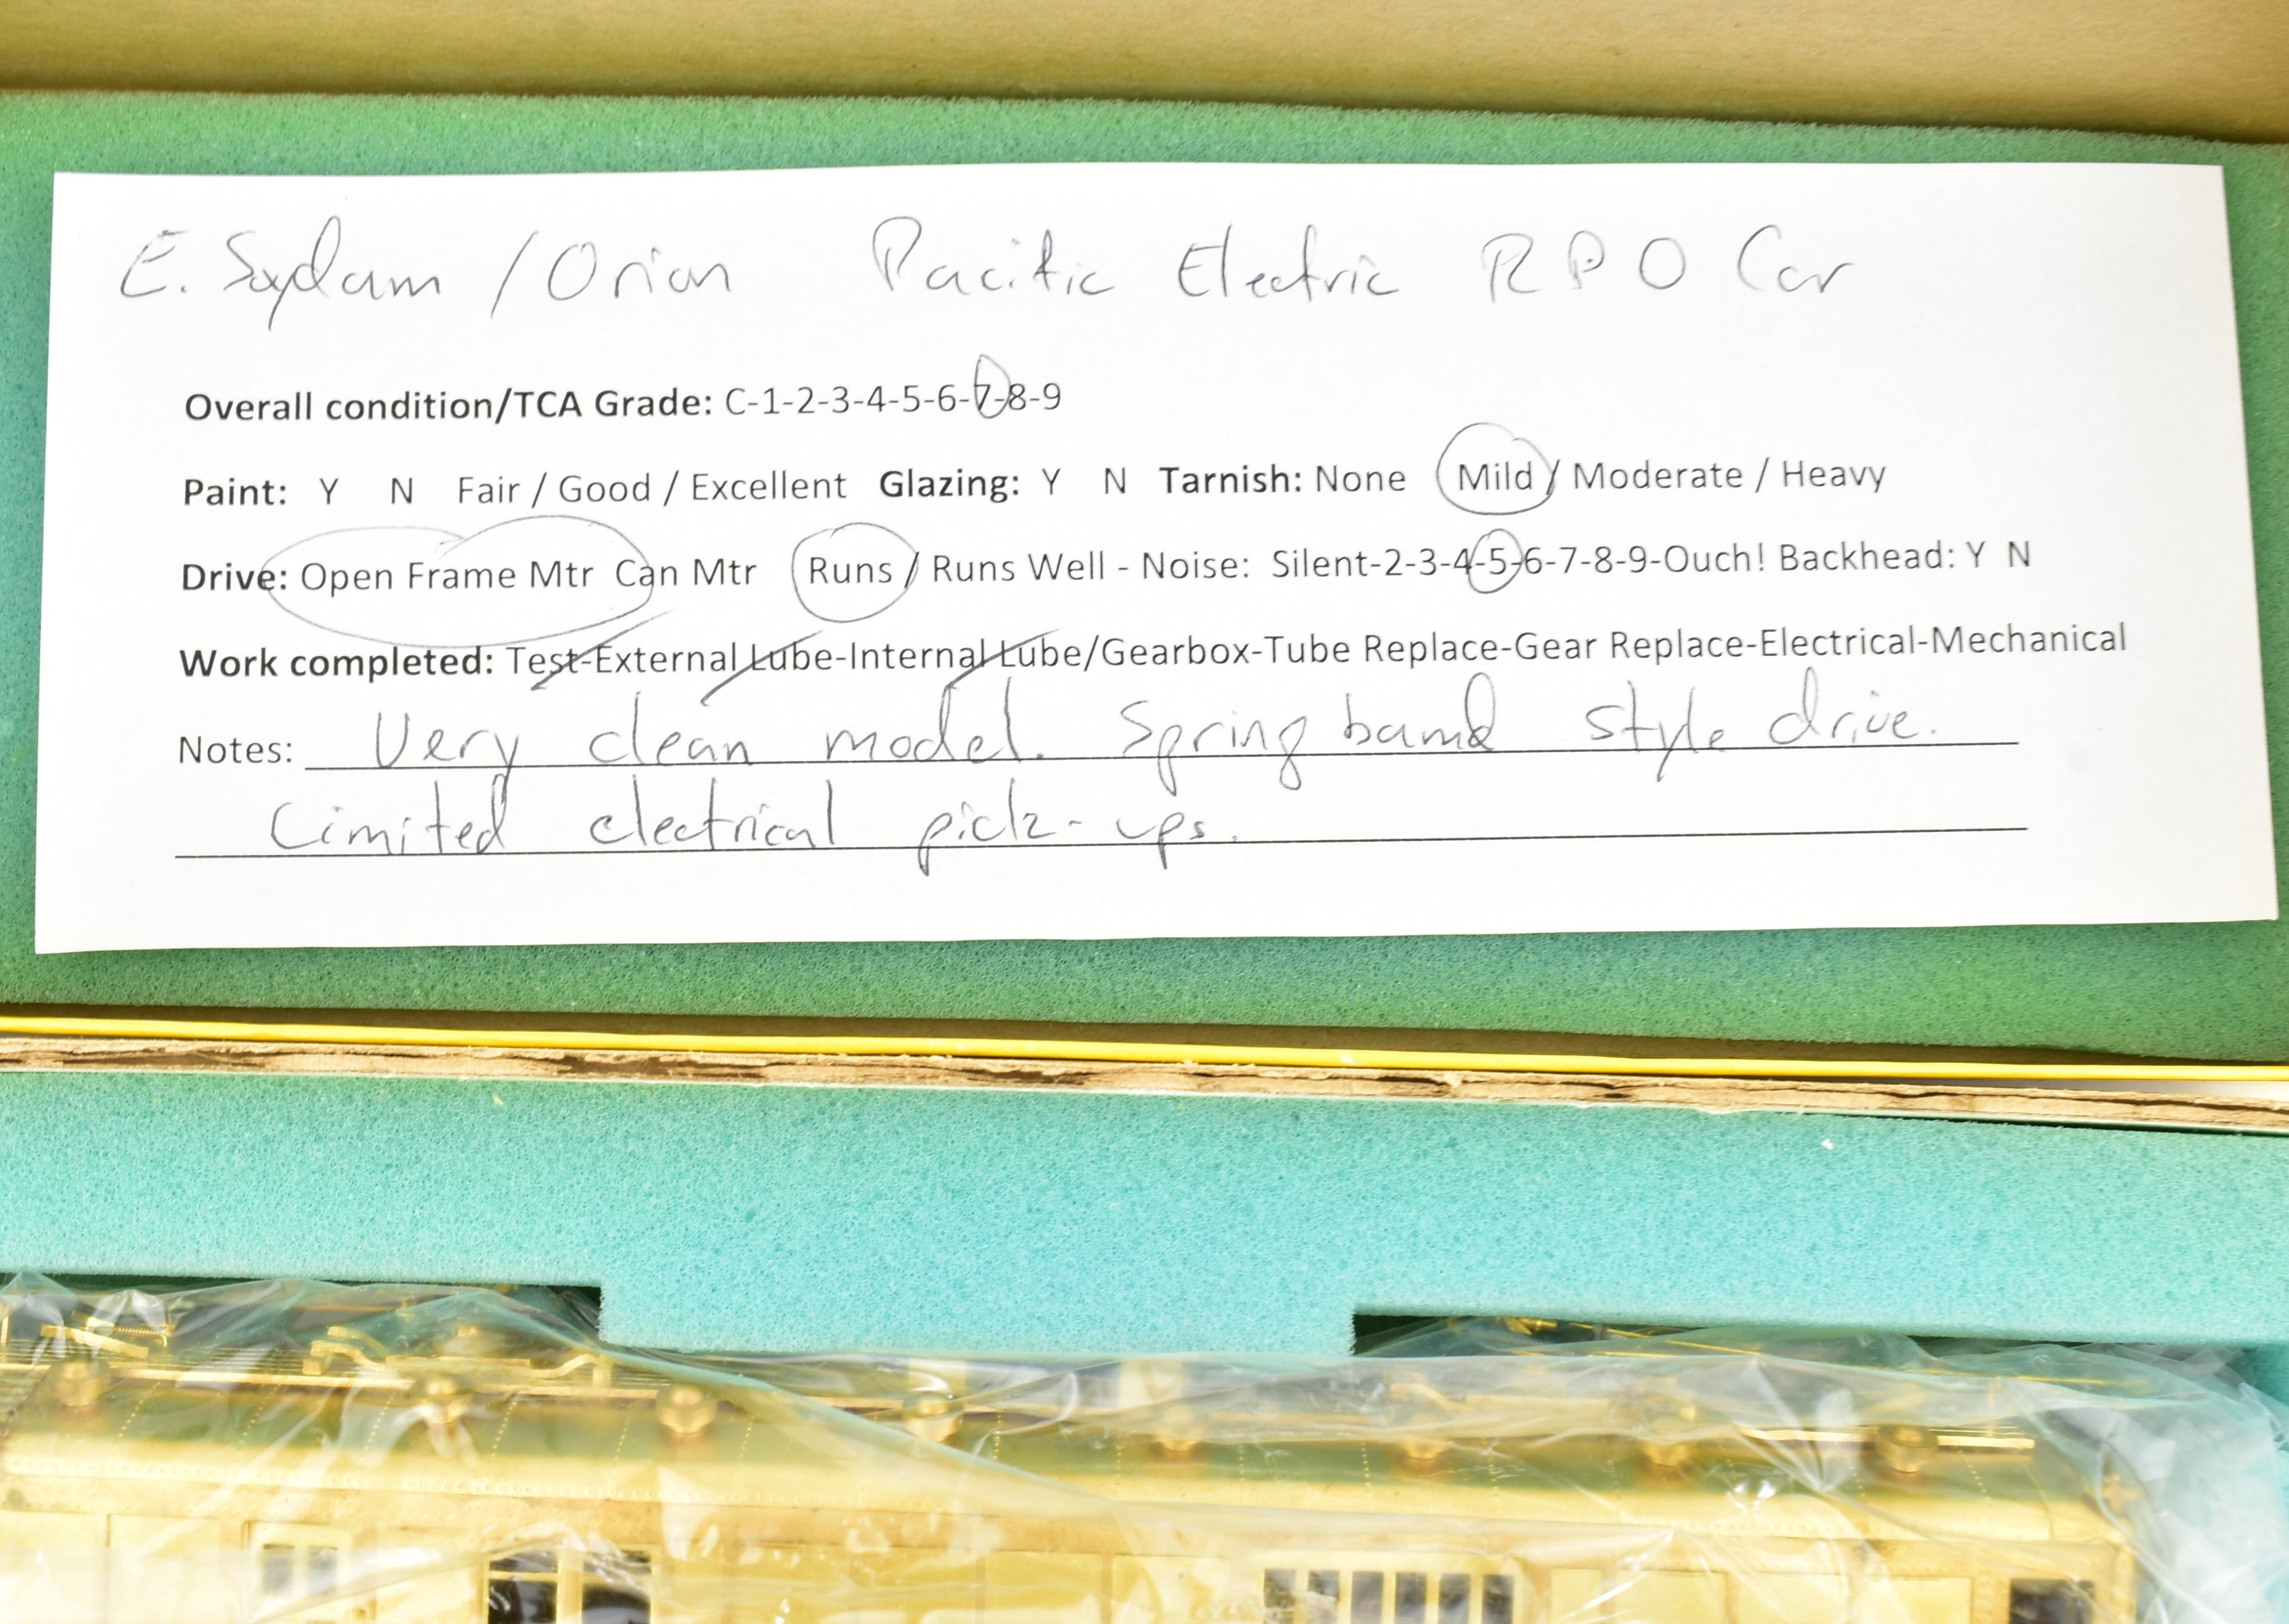 E. Sydam / Orion Pacific Electric RPO Car
Overall condition/TCA Grade: C-1-2-3-4-5-6-7-8-9
Paint: Y N Fair / Good / Excellent Glazing: Y N Tarnish: None Mild / Moderate / Heavy
Drive: Open Frame Mtr Can Mtr Runs / Runs Well - Noise: Silent-2-3-4-5-6-7-8-9-Ouch! Backhead: Y N
Work completed: Test-External Lube-Internal Lube/Gearbox-Tube Replace-Gear Replace-Electrical-Mechanical
Notes: Very clean model. Spring band style drive.
Limited electrical pick-ups.